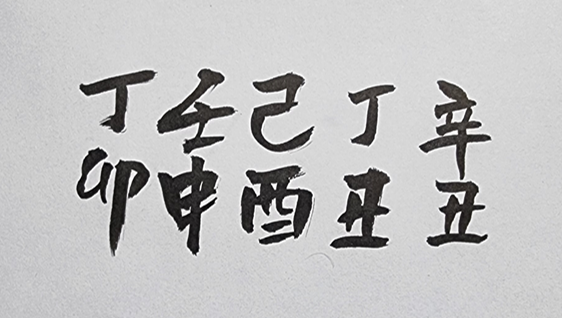 丁壬己丁辛
卯申酉丑丑